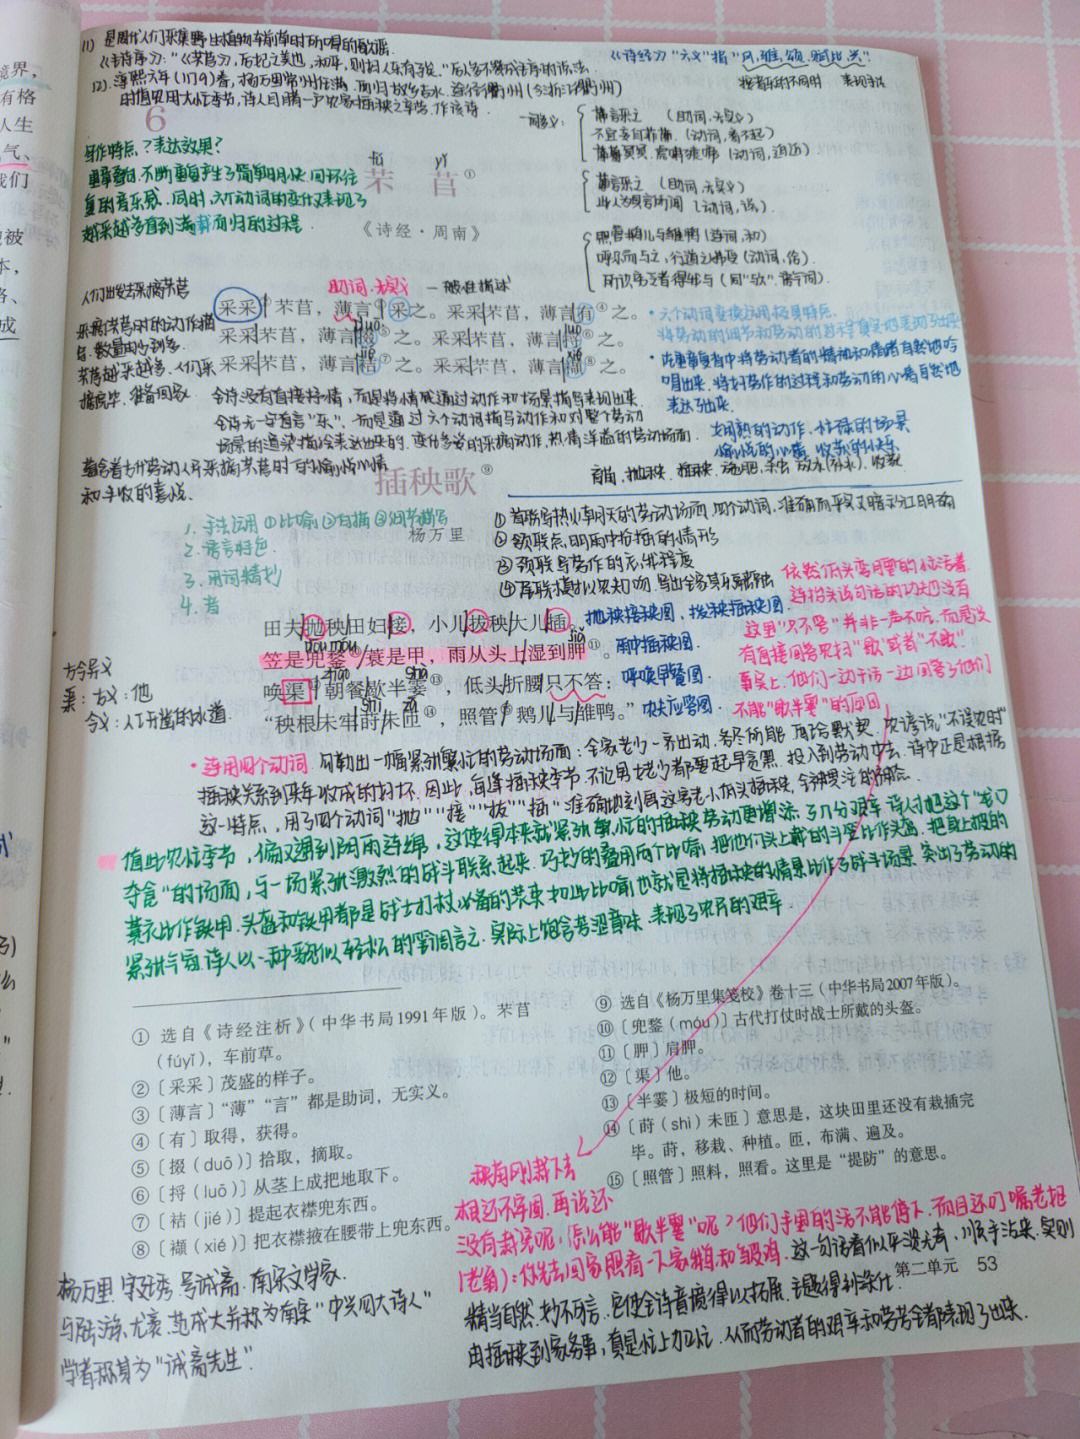 (1) 是周代人们采集野生植物车前草时所唱的歌谣.
《毛诗序》:"《芣苢》,后妃之美也,和平,则妇人乐有子矣."后人多不赞成
《诗经》"六义"指"风、雅、颂、赋、比、兴"
(2). 淳熙六年(1179)春,杨万里常州任满,西归故乡吉水.途经衢州(今浙江衢州)
时值农田大忙季节,诗人目睹一户农家插秧之辛苦.作该诗.
表现手法
6
一词多义:
薄言采之 (助词,无实义)
不宜妄自菲薄 (动词,看不起)
薄暮冥冥,虎啸猿啼 (动词,迫近)
薄言采之 (助词,无实义)
此人为具言所闻 (动词,说).
照管鹅儿与雏鸭 (连词,和)
呼尔而与之,行道之人弗受 (动词,给).
所识穷乏者得我与 (同"欤",语气词).
写作特点?表达效果?
重章叠句.不断重复产生了简单明快、回环往
复的音乐感.同时,六个动词的变化又表现了
越采越多直到满载而归的过程.
fú yǐ
芣 苢①
《诗经·周南》
人们出发去采摘芣苢
助词.无实义
一般性描述
采采②芣苢,薄言③采之。采采芣苢,薄言有④之。
采采芣苢,薄言掇⑤之。采采芣苢,薄言捋⑥之。
采采芣苢,薄言袺⑦之。采采芣苢,薄言襭⑧之。
duō luō
jié xié
采摘芣苢时的动作描
写.数量由少到多.
芣苢越采越多,人们采
摘完毕.准备回家
全诗没有直接抒情,而是将情感通过动作和场景描写表现出来.
全诗无一字有言"乐",而是通过六个动词描写动作和对整个劳动
蕴含着古代劳动人民采摘芣苢时的愉悦心情
和丰收的喜悦.
插秧歌⑨
杨万里
1. 手法运用 ①比喻②白描③细节描写
2. 语言特色
3. 用词精妙
① 首联写热火朝天的劳动场面,四个动词,准确而平实
② 颔联点明雨中抢插的情形
③ 颈联写劳作的
田夫抛秧田妇接,小儿拔秧大儿插。
抛秧接秧图,拔秧插秧图.
dōu móu jiǎ
笠是兜鍪⑩蓑是甲,雨从头上湿到胛⑪。
雨中插秧图.
shà
唤渠⑫朝餐歇半霎⑬,低头折腰只不答:
呼唤早餐图.
shì zā
"秧根未牢莳未匝⑭,照管⑮鹅儿与雏鸭。"
农夫应答图.
古今异义
渠:古义:他
今义:人工开凿的水道.
依然低头弯腰的插秧
连抬头说句话的功夫也没有
这里"只不答"并非一声不吭,而是没
事实上.他们一边干活一边回答了他们
不能"歇半霎"的原因
·连用四个动词.勾勒出一幅紧张繁忙的劳动场面:全家老少一齐出动.各尽所能
插秧关系到来年收成的好坏.因此,每逢插秧季节.不论男女老少都要起早贪黑,投入到劳动中去.诗中正是根据
这一特点,用了四个动词"抛""接""拔""插"准确地刻画
值此农忙季节,偏又遇到阴雨连绵,这使得本来就紧张繁忙的插秧劳动更增添了几分艰辛.诗人才把这个"龙口
夺食"的场面,与一场紧张激烈的战斗联系起来.巧妙的叠用两个比喻,把他们头上戴的斗笠比作头盔,把身上披的
蓑衣比作铁甲.头盔和铁甲都是战士打仗必备的装束.如此比喻,也就是将插秧的情景比作了战斗场景.突出了劳动的
紧张气氛.诗人以一种看似轻松的幽默言之.实际上饱含着沉重意味.表现了农民的艰辛.
① 选自《诗经注析》(中华书局1991年版)。芣苢
(fúyǐ),车前草。
② 〔采采〕茂盛的样子。
③ 〔薄言〕"薄""言"都是助词,无实义。
④ 〔有〕取得,获得。
⑤ 〔掇(duō)〕拾取,摘取。
⑥ 〔捋(luō)〕从茎上成把地取下。
⑦ 〔袺(jié)〕提起衣襟兜东西。
⑧ 〔襭(xié)〕把衣襟掖在腰带上兜东西。
⑨ 选自《杨万里集笺校》卷十三(中华书局2007年版)。
⑩ 〔兜鍪(móu)〕古代打仗时战士所戴的头盔。
⑪ 〔胛〕肩胛。
⑫ 〔渠〕他。
⑬ 〔半霎〕极短的时间。
⑭ 〔莳(shì)未匝〕意思是,这块田里还没有栽插完
毕。莳,移栽、种植。匝,布满、遍及。
⑮ 〔照管〕照料,照看。这里是"提防"的意思。
秧苗刚栽下去
根还不牢固.再说还
没有栽完呢,怎么能"歇半霎"呢?他们手里的活不能停下.而且还叮嘱老伴
(老爷):你先去回家照看一下家鹅和
这一句话看似平淡无奇,顺手沾来.实则
精当自然.妙不可言.它使全诗意境得以拓展.主题得到深化.
由插秧到家务事,真是忙上加忙.从而劳动者的艰辛和劳苦全都表现了出来.
第二单元 53
杨万里.字廷秀.号诚斋.南宋文学家.
与陆游、尤袤、范成大并称为南宋"中兴四大诗人"
学者称其为"诚斋先生".